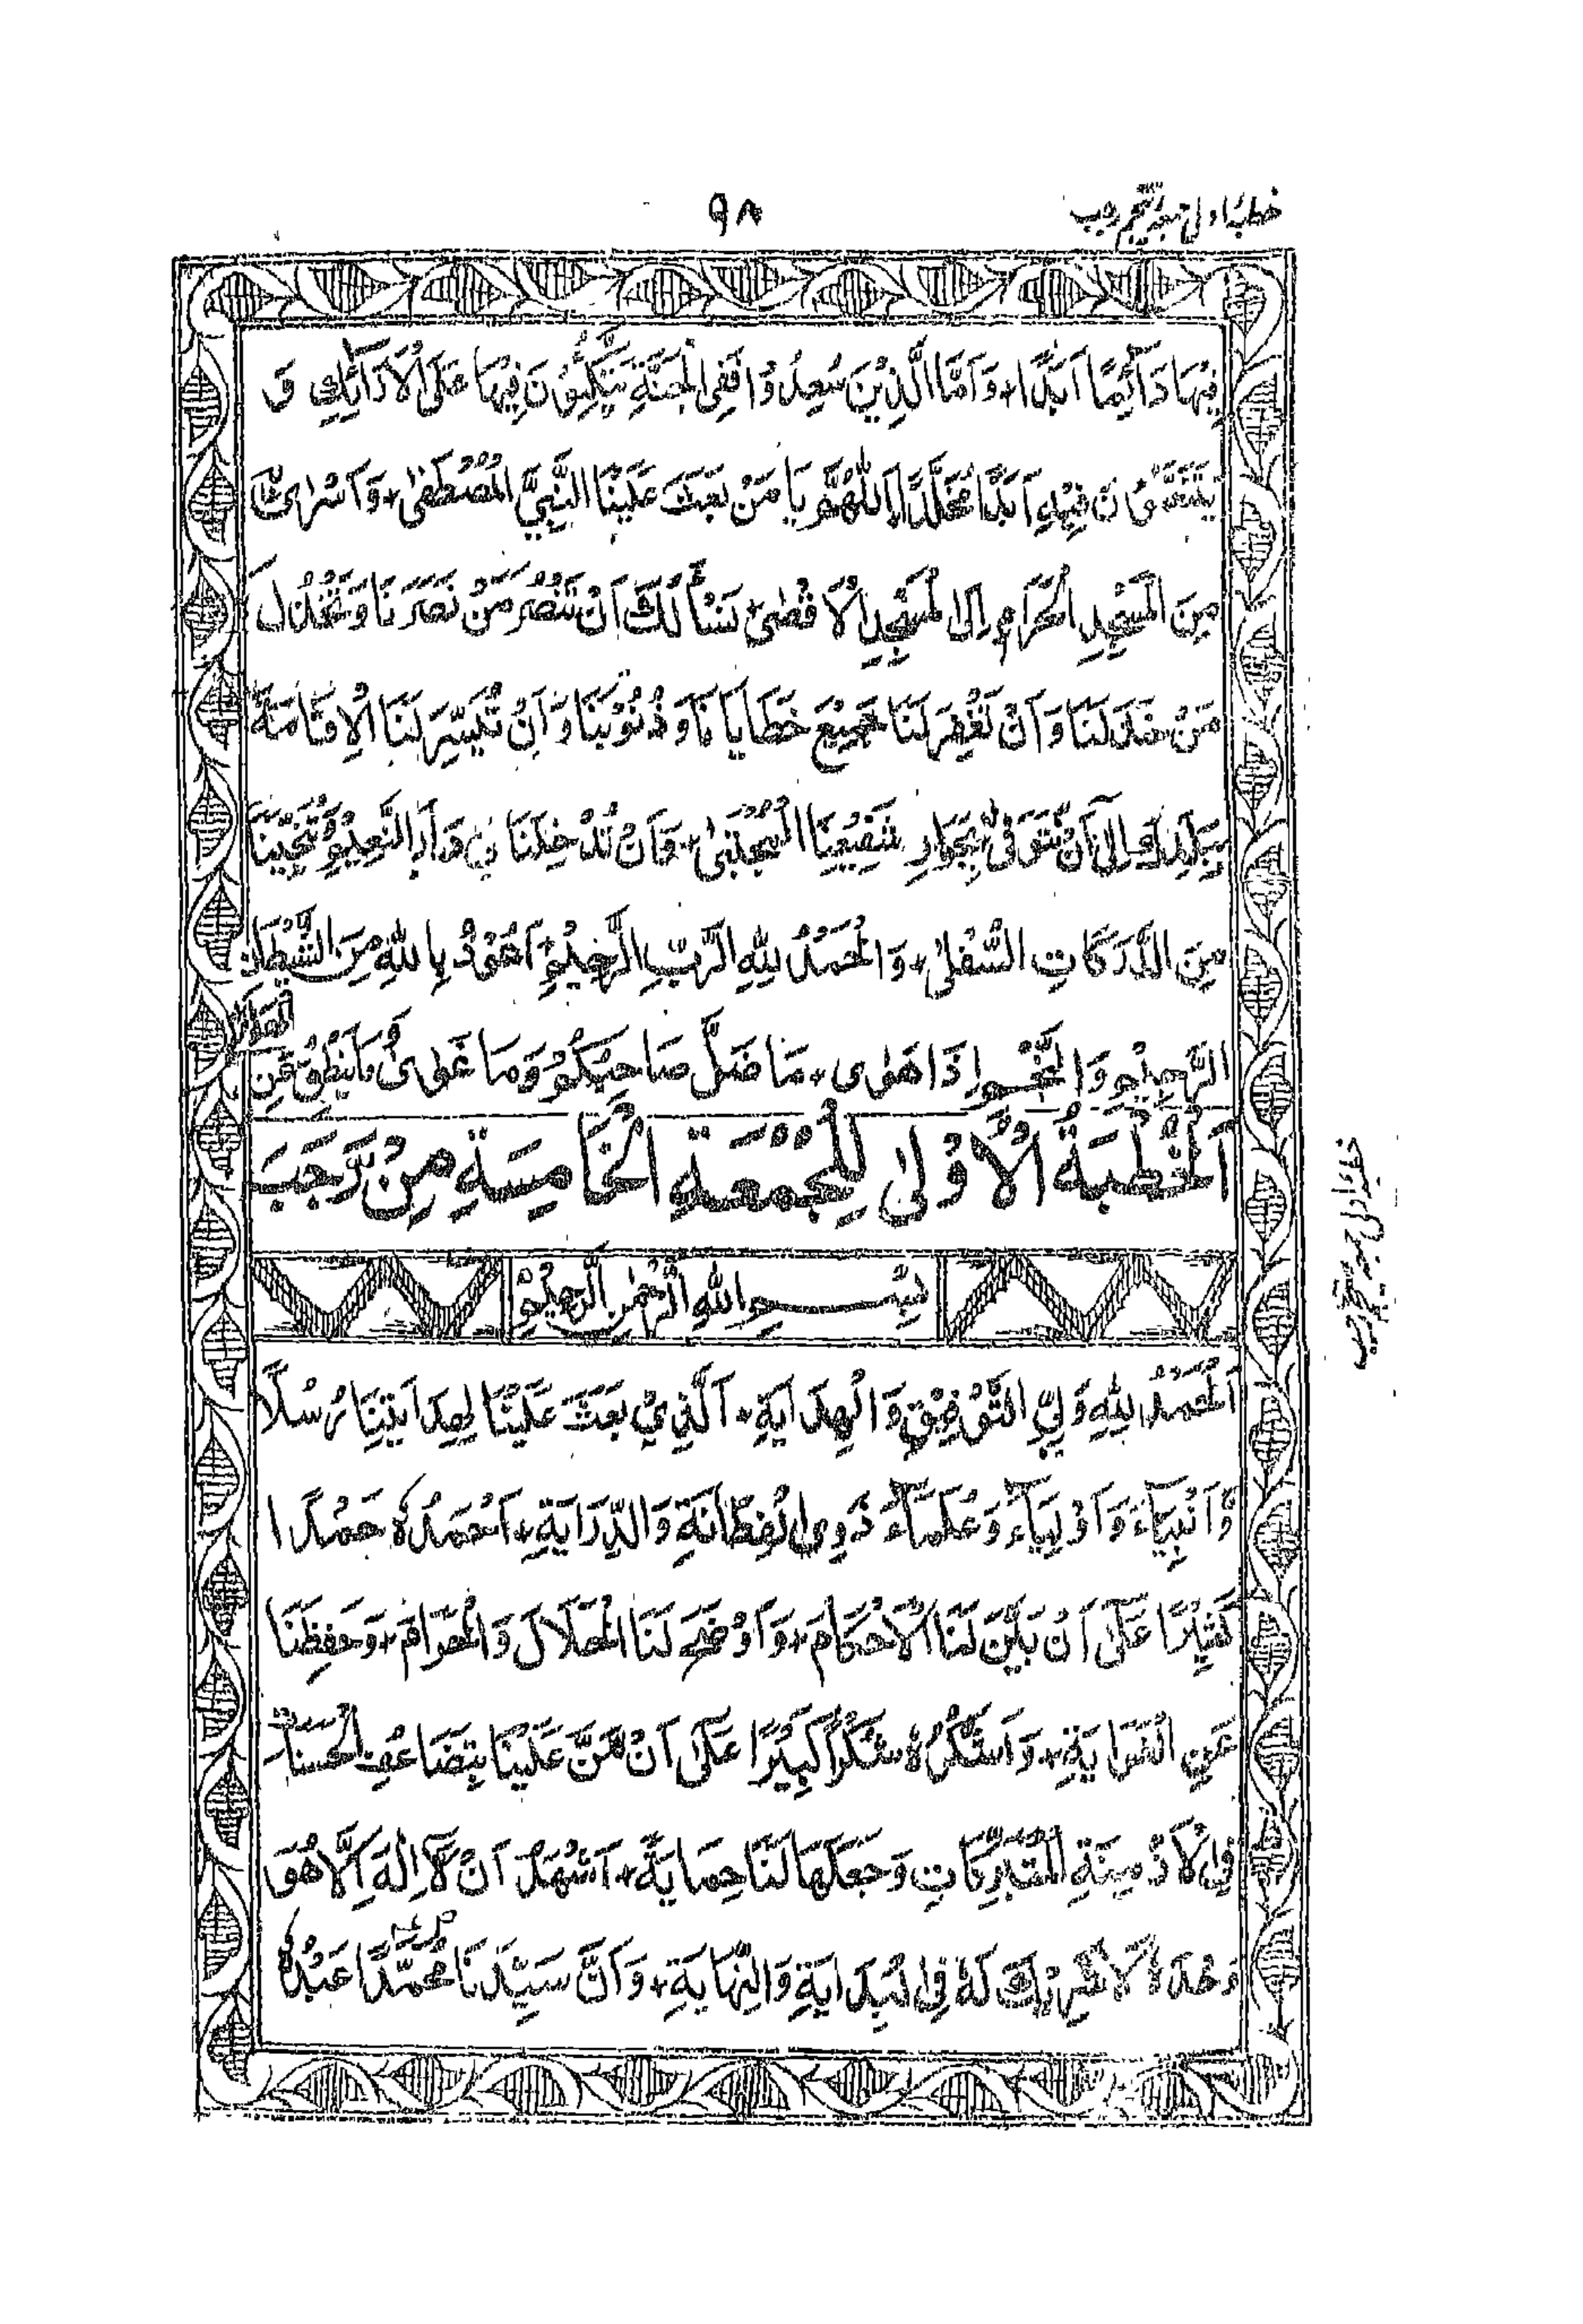 خطبۂ اولی جمعہ پنجم رجب
۹۸
فِيْهَا دَآئِمًا اَبَدًا، وَاَمَّا الَّذِيْنَ سُعِدُوْا فَفِی الْجَنَّةِ يَتَّكِئُوْنَ فِيْهَا عَلَی الْاَرَآئِكِ وَ
يَتَنَعَّمُوْنَ فِيْهِ اَبَدًا مُخَلَّدًا اَللّٰهُمَّ يَا مَنْ بَعَثَ عَلَيْنَا النَّبِيَّ الْمُصْطَفٰی، وَاَسْرٰی بِهٖ
مِنَ الْمَسْجِدِ الْحَرَامِ اِلَی الْمَسْجِدِ الْاَقْصٰی نَسْأَلُكَ اَنْ تَنْصُرَ مَنْ نَصَرَنَا وَتَخْذُلَ
مَنْ خَذَلَنَا وَاَنْ تَغْفِرَ لَنَا جَمِيْعَ خَطَايَانَا وَذُنُوْبَنَا وَاَنْ تُيَسِّرَ لَنَا الْاِقَامَةَ
اِلٰی اَنْ نُتَوَفّٰی بِجَوَارِ شَفِيْعِنَا الْمُجْتَبٰی، وَاَنْ تُدْخِلَنَا فِيْ دَارِ النَّعِيْمِ وَتُنَجِّيَنَا
مِنَ الدَّرَكَاتِ السُّفْلٰی، وَالْحَمْدُ لِلّٰهِ الرَّبِّ الرَّحِيْمِ، اَعُوْذُ بِاللّٰهِ مِنَ الشَّيْطٰنِ
الرَّجِيْمِ وَالنَّجْمِ اِذَا هَوٰی، مَا ضَلَّ صَاحِبُكُمْ وَمَا غَوٰی وَمَا يَنْطِقُ عَنِ
الْهَوٰی
اَلْخُطْبَةُ الْاُوْلٰی لِلْجُمْعَةِ الْخَامِسَةِ مِنْ رَّجَبَ
بِسْمِ اللّٰهِ الرَّحْمٰنِ الرَّحِيْمِ
اَلْحَمْدُ لِلّٰهِ وَلِيِّ التَّوْفِيْقِ وَالْهِدَايَةِ، اَلَّذِيْ بَعَثَ عَلَيْنَا لِهِدَايَتِنَا رُسُلًا
وَّاَنْبِيَآءَ وَاَوْلِيَآءَ وَعُلَمَآءَ ذَوِی الْفِطَانَةِ وَالدِّرَايَةِ، اَحْمَدُهٗ حَمْدًا
كَثِيْرًا عَلٰی اَنْ بَيَّنَ لَنَا الْاَحْكَامَ، وَاَوْضَحَ لَنَا الْحَلَالَ وَالْحَرَامَ، وَحَفِظَنَا
عَنِ الْغَوَايَةِ، وَاَشْكُرُهٗ شُكْرًا كَبِيْرًا عَلٰی اَنْ مَّنَّ عَلَيْنَا بِتَضَاعُفِ الْحَسَنَاتِ
فِی الْاَزْمِنَةِ الْمُتَبَرِّكَاتِ وَجَعَلَهَا لَنَا حِمَايَةً، اَشْهَدُ اَنْ لَّآ اِلٰهَ اِلَّا هُوَ
وَحْدَهٗ لَا شَرِيْكَ لَهٗ فِی الْبِدَايَةِ وَالنِّهَايَةِ، وَاَنَّ سَيِّدَنَا مُحَمَّدًا عَبْدُهٗ
خطبۂ اولی جمعہ پنجم رجب